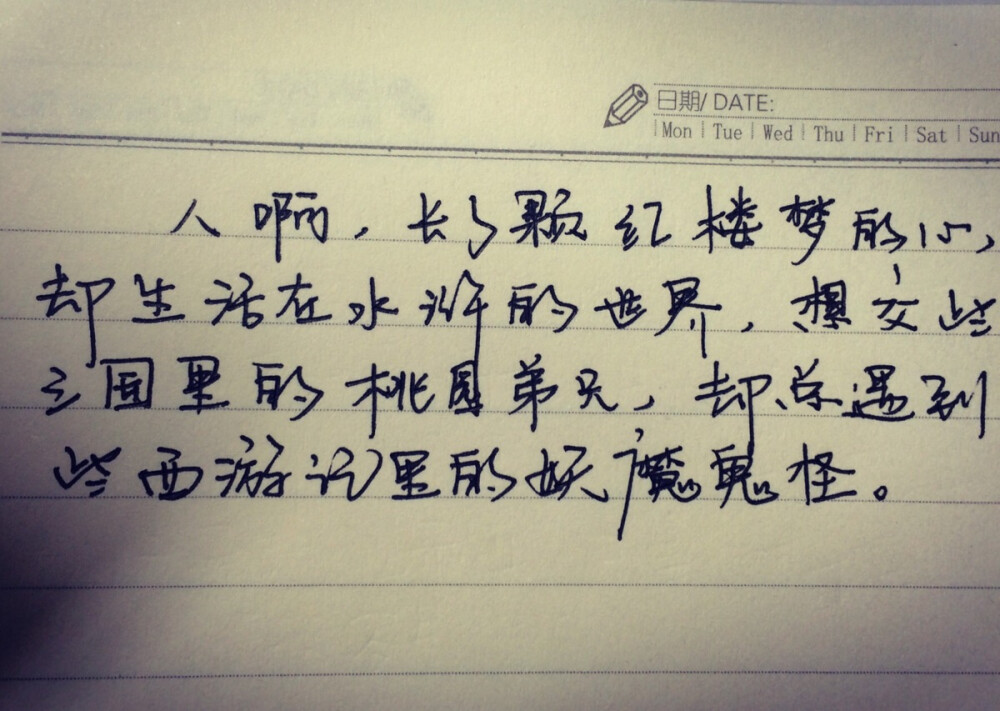 日期/ DATE:
Mon | Tue | Wed | Thu | Fri | Sat | Sun
人啊，长了颗红楼梦的心，
却生活在水浒的世界，想交些
三国里的桃园弟兄，却总遇到
些西游记里的妖魔鬼怪。